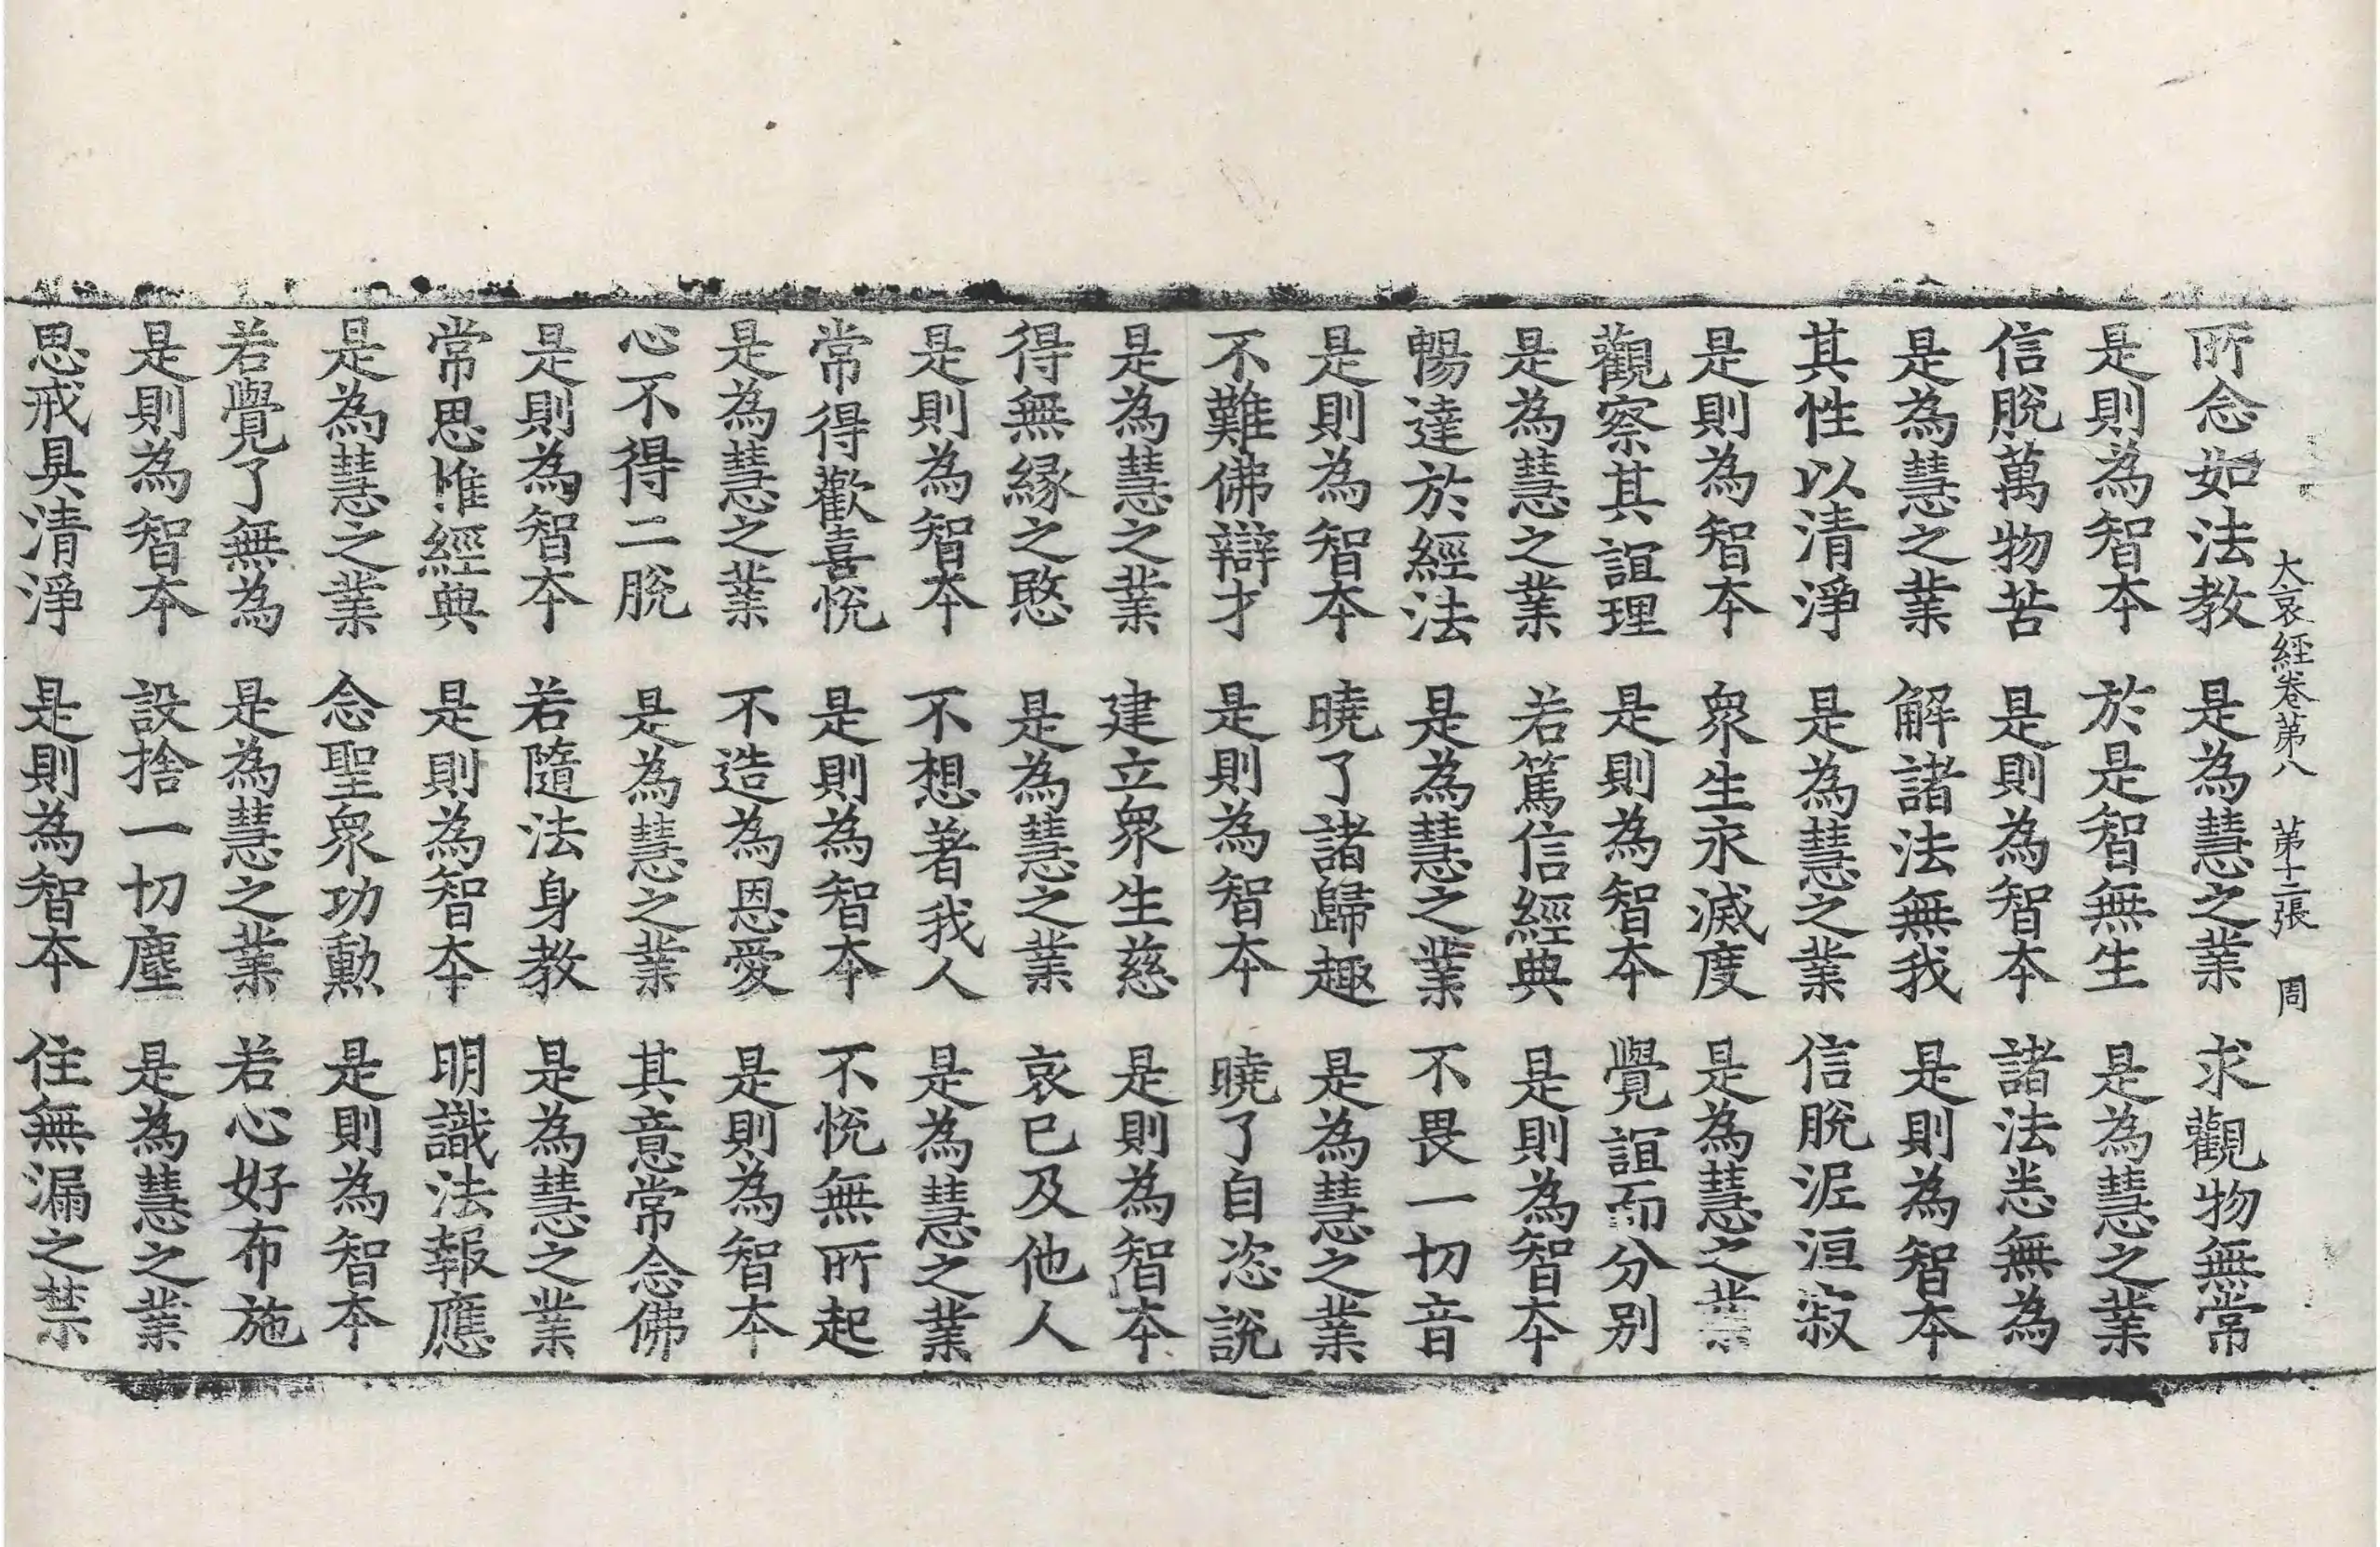 大哀經卷第八 第十二張 周
所念如法教 是為慧之業 求觀物無常
是則為智本 於是智無生 是為慧之業
信脫萬物苦 是則為智本 諸法悉無為
是為慧之業 解諸法無我 是則為智本
其性以清淨 是為慧之業 信脫泥洹寂
是則為智本 衆生永滅度 是為慧之業
觀察其誼理 是則為智本 覺誼而分别
是為慧之業 若篤信經典 是則為智本
暢達於經法 是為慧之業 不畏一切音
是則為智本 曉了諸歸趣 是為慧之業
不難佛辯才 是則為智本 曉了自恣說
是為慧之業 建立衆生慈 是則為智本
得無縁之愍 是為慧之業 哀已及他人
是則為智本 不想著我人 是為慧之業
常得歡喜悅 是則為智本 不悅無所起
是為慧之業 不造為恩愛 是則為智本
心不得二脫 是為慧之業 其意常念佛
是則為智本 若隨法身教 是為慧之業
常思惟經典 是則為智本 明識法報應
是為慧之業 念聖衆功勳 是則為智本
若覺了無為 是為慧之業 若心好布施
是則為智本 設捨一切塵 是為慧之業
思戒具清淨 是則為智本 住無漏之禁